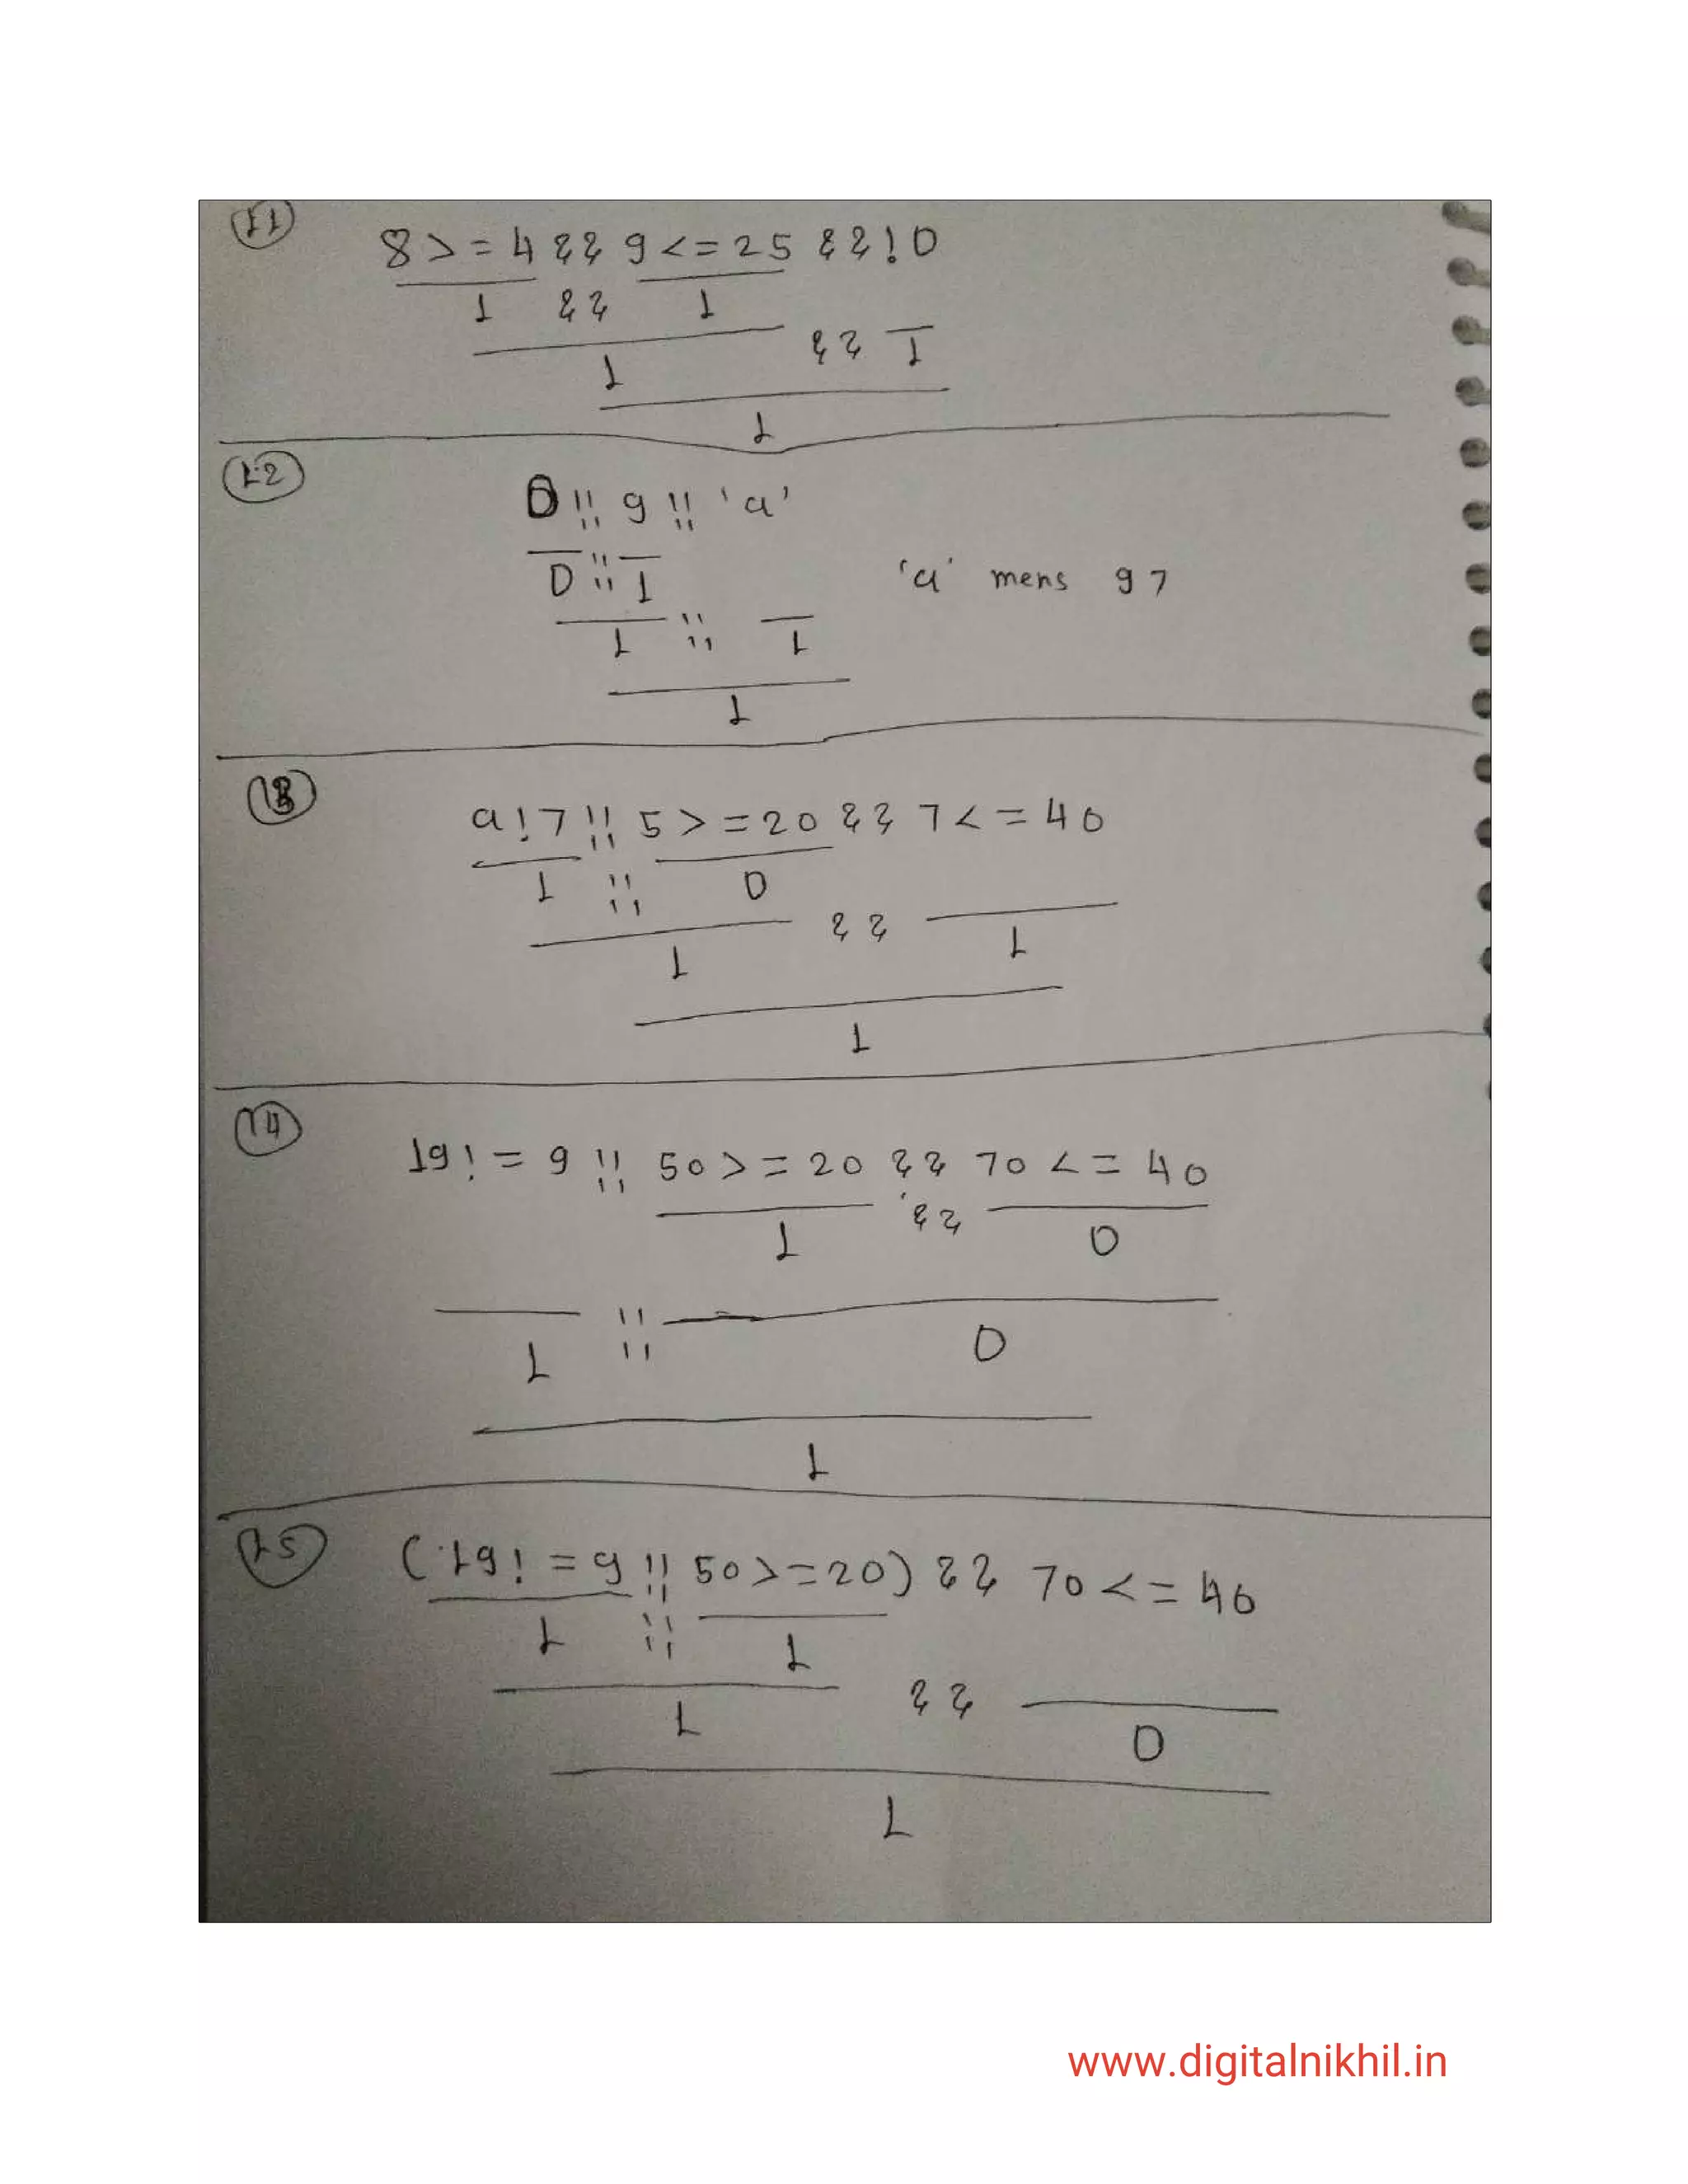 11
8 > = 4 && 9 < = 25 && ! 0
1 && 1
1 && 1
1
12
0 || 9 || 'a'
0 || 1 'a' mens 97
1 || 1
1
13
a ! 7 || 5 > = 20 && 7 < = 40
1 || 0
1 && 1
1
14
19 ! = 9 || 50 > = 20 && 70 < = 40
1 && 0
1 || 0
1
15
(19 ! = 9 || 50 > = 20) && 70 < = 40
1 || 1
1 && 0
1
www.digitalnikhil.in